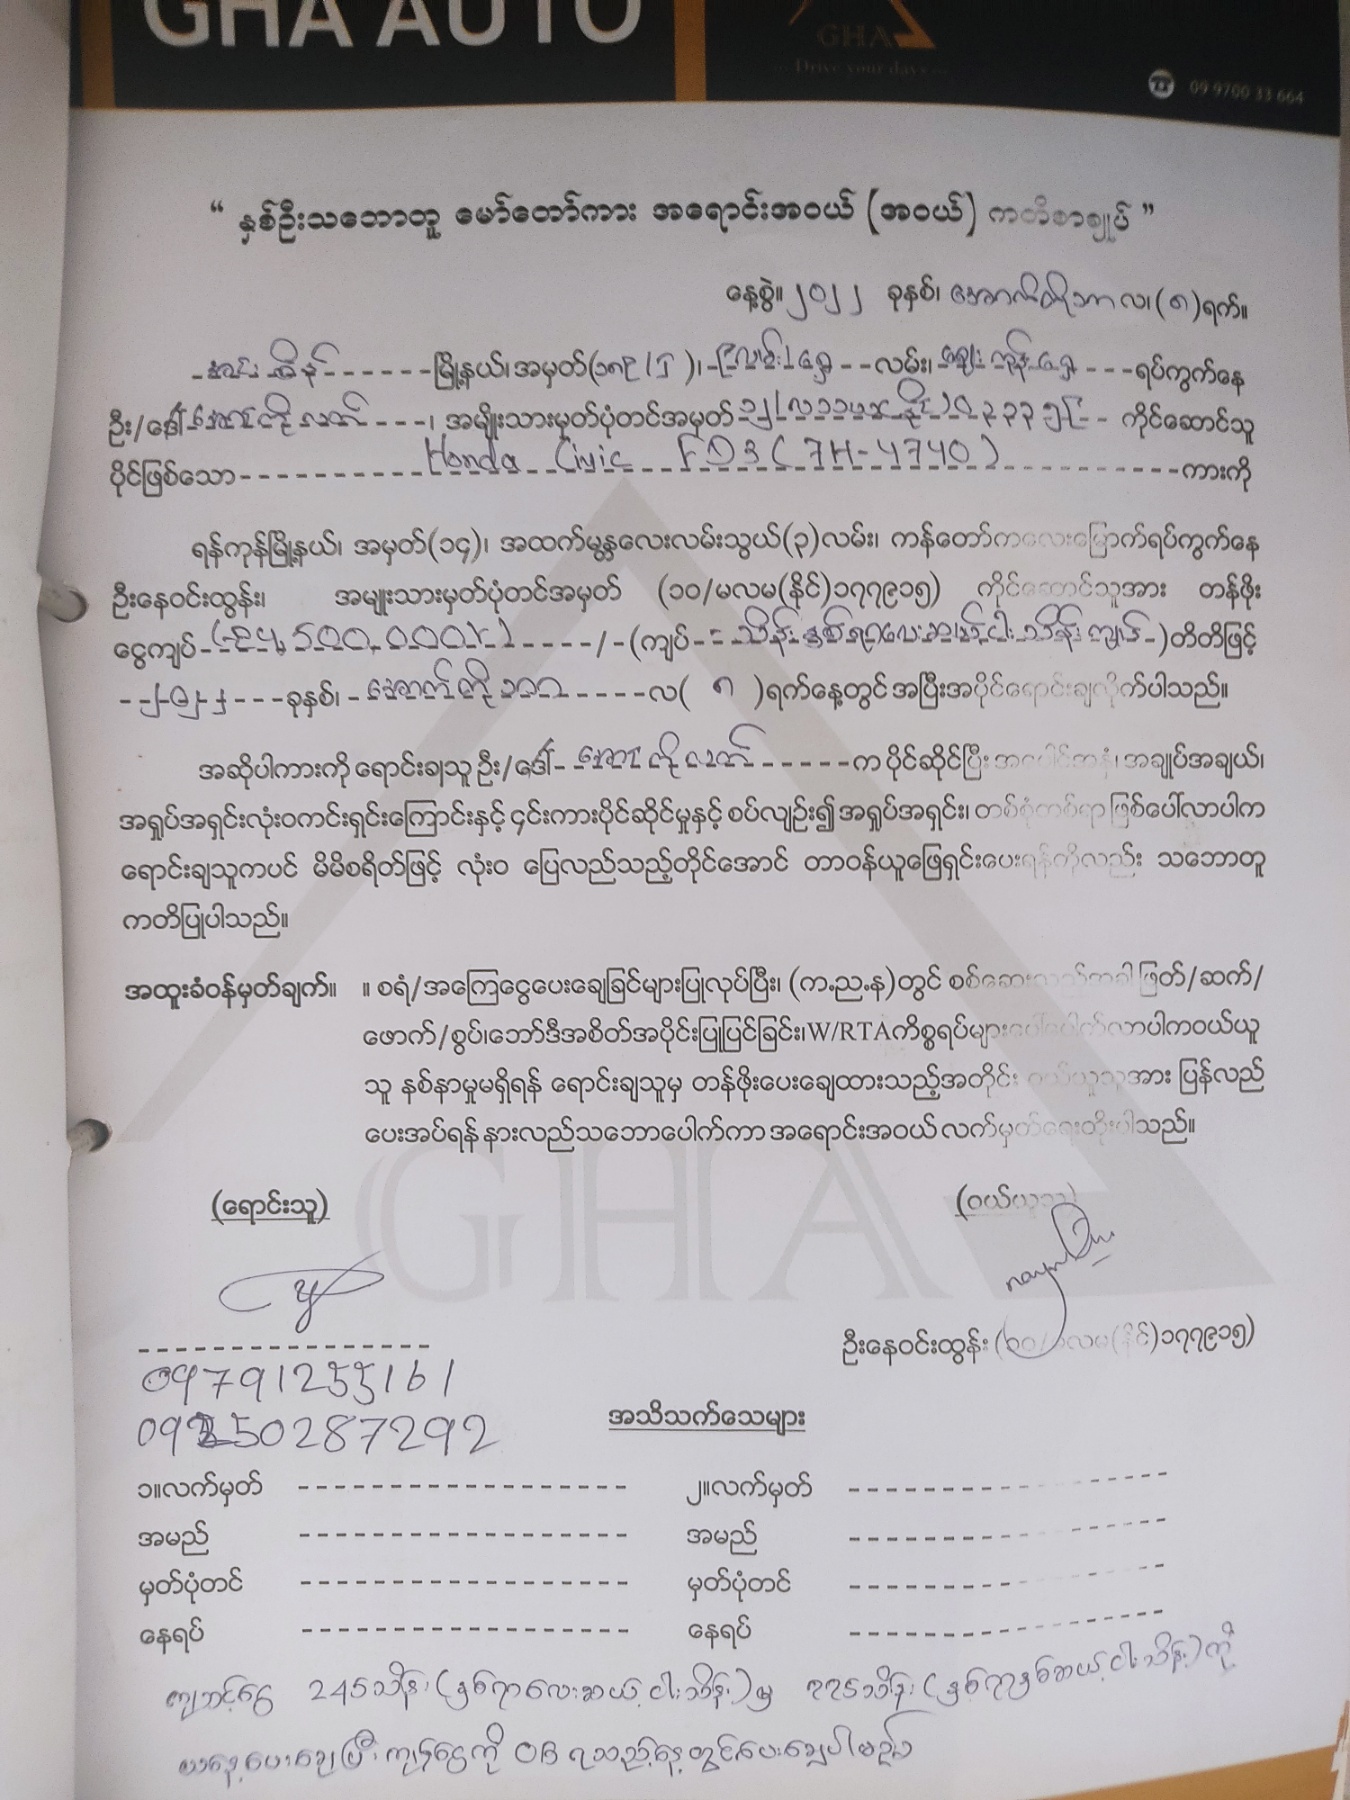 GHA AUTO
GHA
Drive your days
09 9700 33 664
“ နှစ်ဦးသဘောတူ မော်တော်ကား အရောင်းအဝယ် (အဝယ်) ကတိစာချုပ် ”
နေ့စွဲ။ ၂၀၂၂ ခုနှစ်၊ အောက်တိုဘာ လ၊ (၈) ရက်။
အင်းစိန် မြို့နယ်၊ အမှတ်( ), လမ်း၊ ရပ်ကွက်နေ
ဦး/ဒေါ် အောင်ကိုလတ် ၊ အမျိုးသားမှတ်ပုံတင်အမှတ် ကိုင်ဆောင်သူ
ပိုင်ဖြစ်သော Honda Civic FD3 (7H-4740) ကားကို
ရန်ကုန်မြို့နယ်၊ အမှတ်(၁၄)၊ အထက်မန္တလေးလမ်းသွယ်(၃)လမ်း၊ ကန်တော်ကလေးမြောက်ရပ်ကွက်နေ
ဦးနေဝင်းထွန်း၊ အမျိုးသားမှတ်ပုံတင်အမှတ် (၁၀/မလမ(နိုင်)၁၇၇၉၁၅) ကိုင်ဆောင်သူအား တန်ဖိုး
ငွေကျပ် (24,500,000k) /-(ကျပ် သိန်းနှစ်ရာလေးဆယ့်ငါးသိန်းကျပ် )တိတိဖြင့်
၂၀၂၂ ခုနှစ်၊ အောက်တိုဘာ လ( ၈ )ရက်နေ့တွင် အပြီးအပိုင်ရောင်းချလိုက်ပါသည်။
အဆိုပါကားကို ရောင်းချသူ ဦး/ဒေါ် အောင်ကိုလတ် က ပိုင်ဆိုင်ပြီး အပေါင်အနှံ၊ အချုပ်အချယ်၊
အရှုပ်အရှင်းလုံးဝကင်းရှင်းကြောင်းနှင့် ၎င်းကားပိုင်ဆိုင်မှုနှင့် စပ်လျဉ်း၍ အရှုပ်အရှင်း၊ တစ်စုံတစ်ရာ ဖြစ်ပေါ်လာပါက
ရောင်းချသူကပင် မိမိစရိတ်ဖြင့် လုံးဝ ပြေလည်သည့်တိုင်အောင် တာဝန်ယူဖြေရှင်းပေးရန်ကိုလည်း သဘောတူ
ကတိပြုပါသည်။
အထူးခံဝန်မှတ်ချက်။ ။ စရံ/အကြေငွေပေးချေခြင်များပြုလုပ်ပြီး၊ (က.ည.န)တွင် စစ်ဆေးသည့်အခါ ဖြတ်/ဆက်/
ဖောက်/စွပ်၊ဘော်ဒီအစိတ်အပိုင်းပြုပြင်ခြင်း၊W/RTAကိစ္စရပ်များပေါ်ပေါက်လာပါကဝယ်ယူ
သူ နစ်နာမှုမရှိရန် ရောင်းချသူမှ တန်ဖိုးပေးချေထားသည့်အတိုင်း ဝယ်ယူသူအား ပြန်လည်
ပေးအပ်ရန် နားလည်သဘောပေါက်ကာ အရောင်းအဝယ် လက်မှတ်ရေးထိုးပါသည်။
(ရောင်းသူ) (ဝယ်ယူသူ)
ဦးနေဝင်းထွန်း (၁၀/မလမ(နိုင်)၁၇၇၉၁၅)
09791255161
09250287292
အသိသက်သေများ
၁။လက်မှတ် ၂။လက်မှတ်
အမည် အမည်
မှတ်ပုံတင် မှတ်ပုံတင်
နေရပ် နေရပ်
ကျသင့်ငွေ 245သိန်း (နှစ်ရာလေးဆယ့်ငါးသိန်း)မှ 225သိန်း (နှစ်ရာနှစ်ဆယ့်ငါးသိန်း)ကို
ယနေ့ပေးချေပြီး ကျန်ငွေကို OB ရသည့်နေ့တွင်ပေးချေပါမည်။